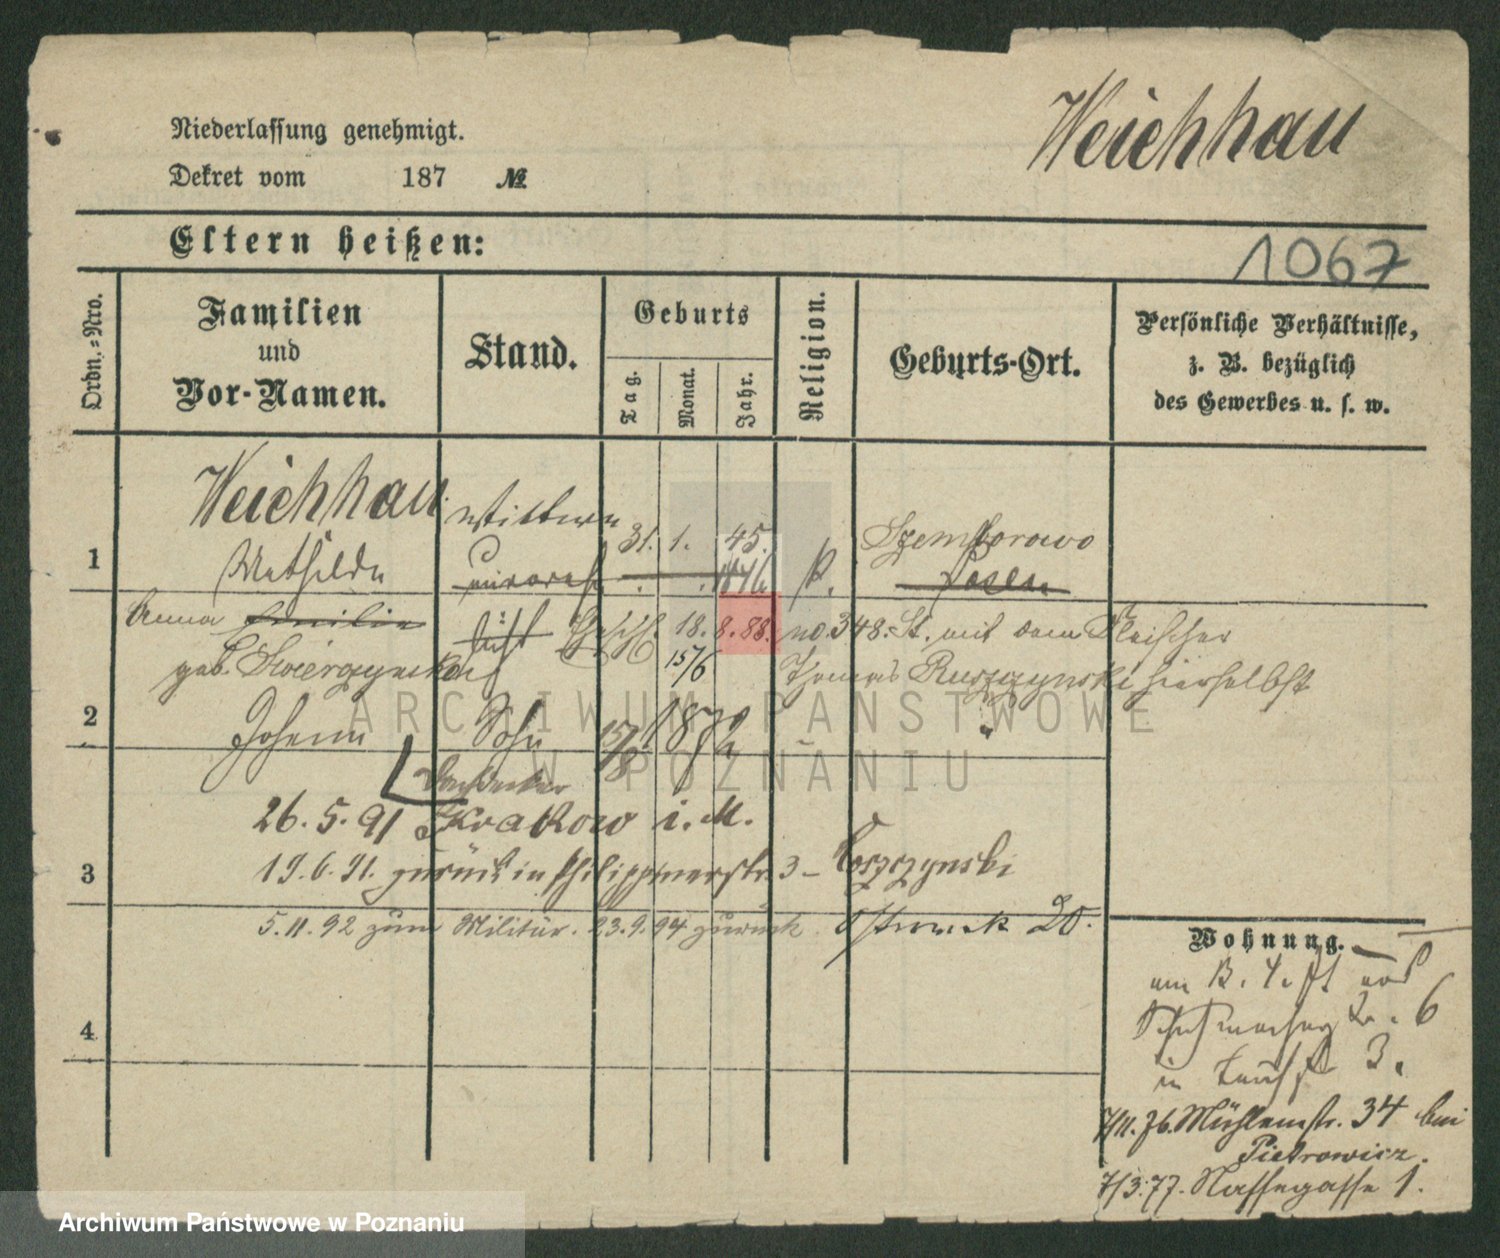 Weichhau
Niederlassung genehmigt.
Dekret vom 187 №
Eltern heißen:
1067
Ordn.=Nro.
Familien
und
Vor-Namen.
Stand.
Geburts
Tag.
Monat.
Jahr.
Religion.
Geburts-Ort.
Persönliche Verhältnisse,
z. B. bezüglich
des Gewerbes u. s. w.
Weichhau
Wittwe
31. 1. 45.
Szemborowo
1
Mathilde
1846
k.
Posen
Anna Emilie
18. 8. 88. no. 348. St. mit dem Fleischer
geb. Swierczynska
15/6
Thomas Ruszczynski hierselbst
2
Johann
Sohn
15/8 187
Dachdecker
26. 5. 91 Krakow i. M.
3
19. 6. 91. zurück in Philippinerstr. 3 -
5. 11. 92 zum Militär. 23. 9. 94 zurück
20.
Wohnung.
6
4
3.
7/11. 76. Mühlenstr. 34 bei
Pietrowicz.
7/3. 77. Nassegasse 1.
ARCHIWUM PAŃSTWOWE
W POZNANIU
Archiwum Państwowe w Poznaniu